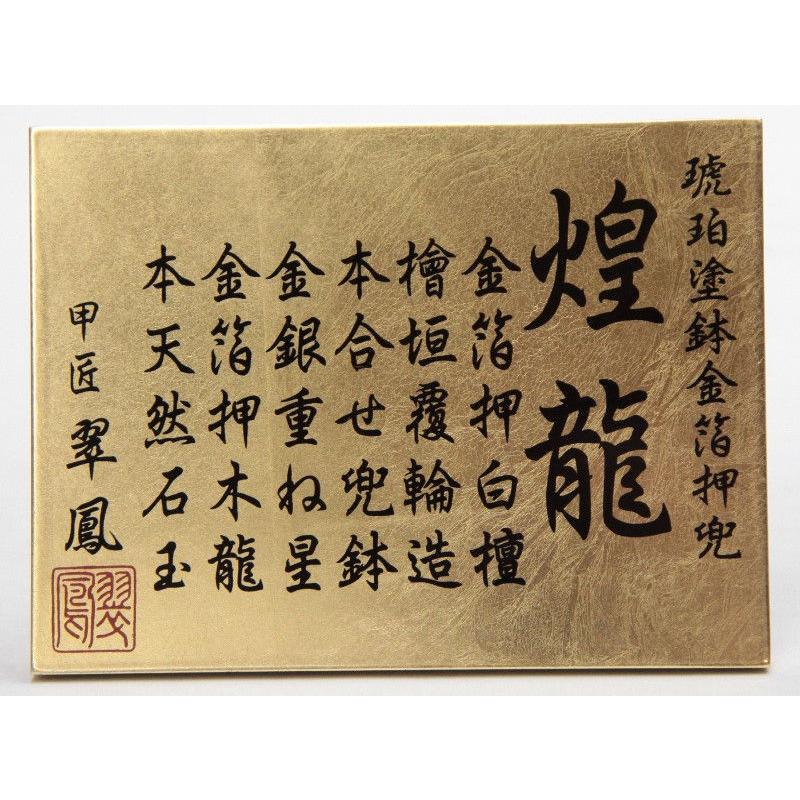 琥珀塗鉢金箔押兜
煌龍
金箔押白檀
檜垣覆輪造
本合せ兜鉢
金銀重ね星
金箔押木龍
本天然石玉
甲匠翠鳳
翠鳳